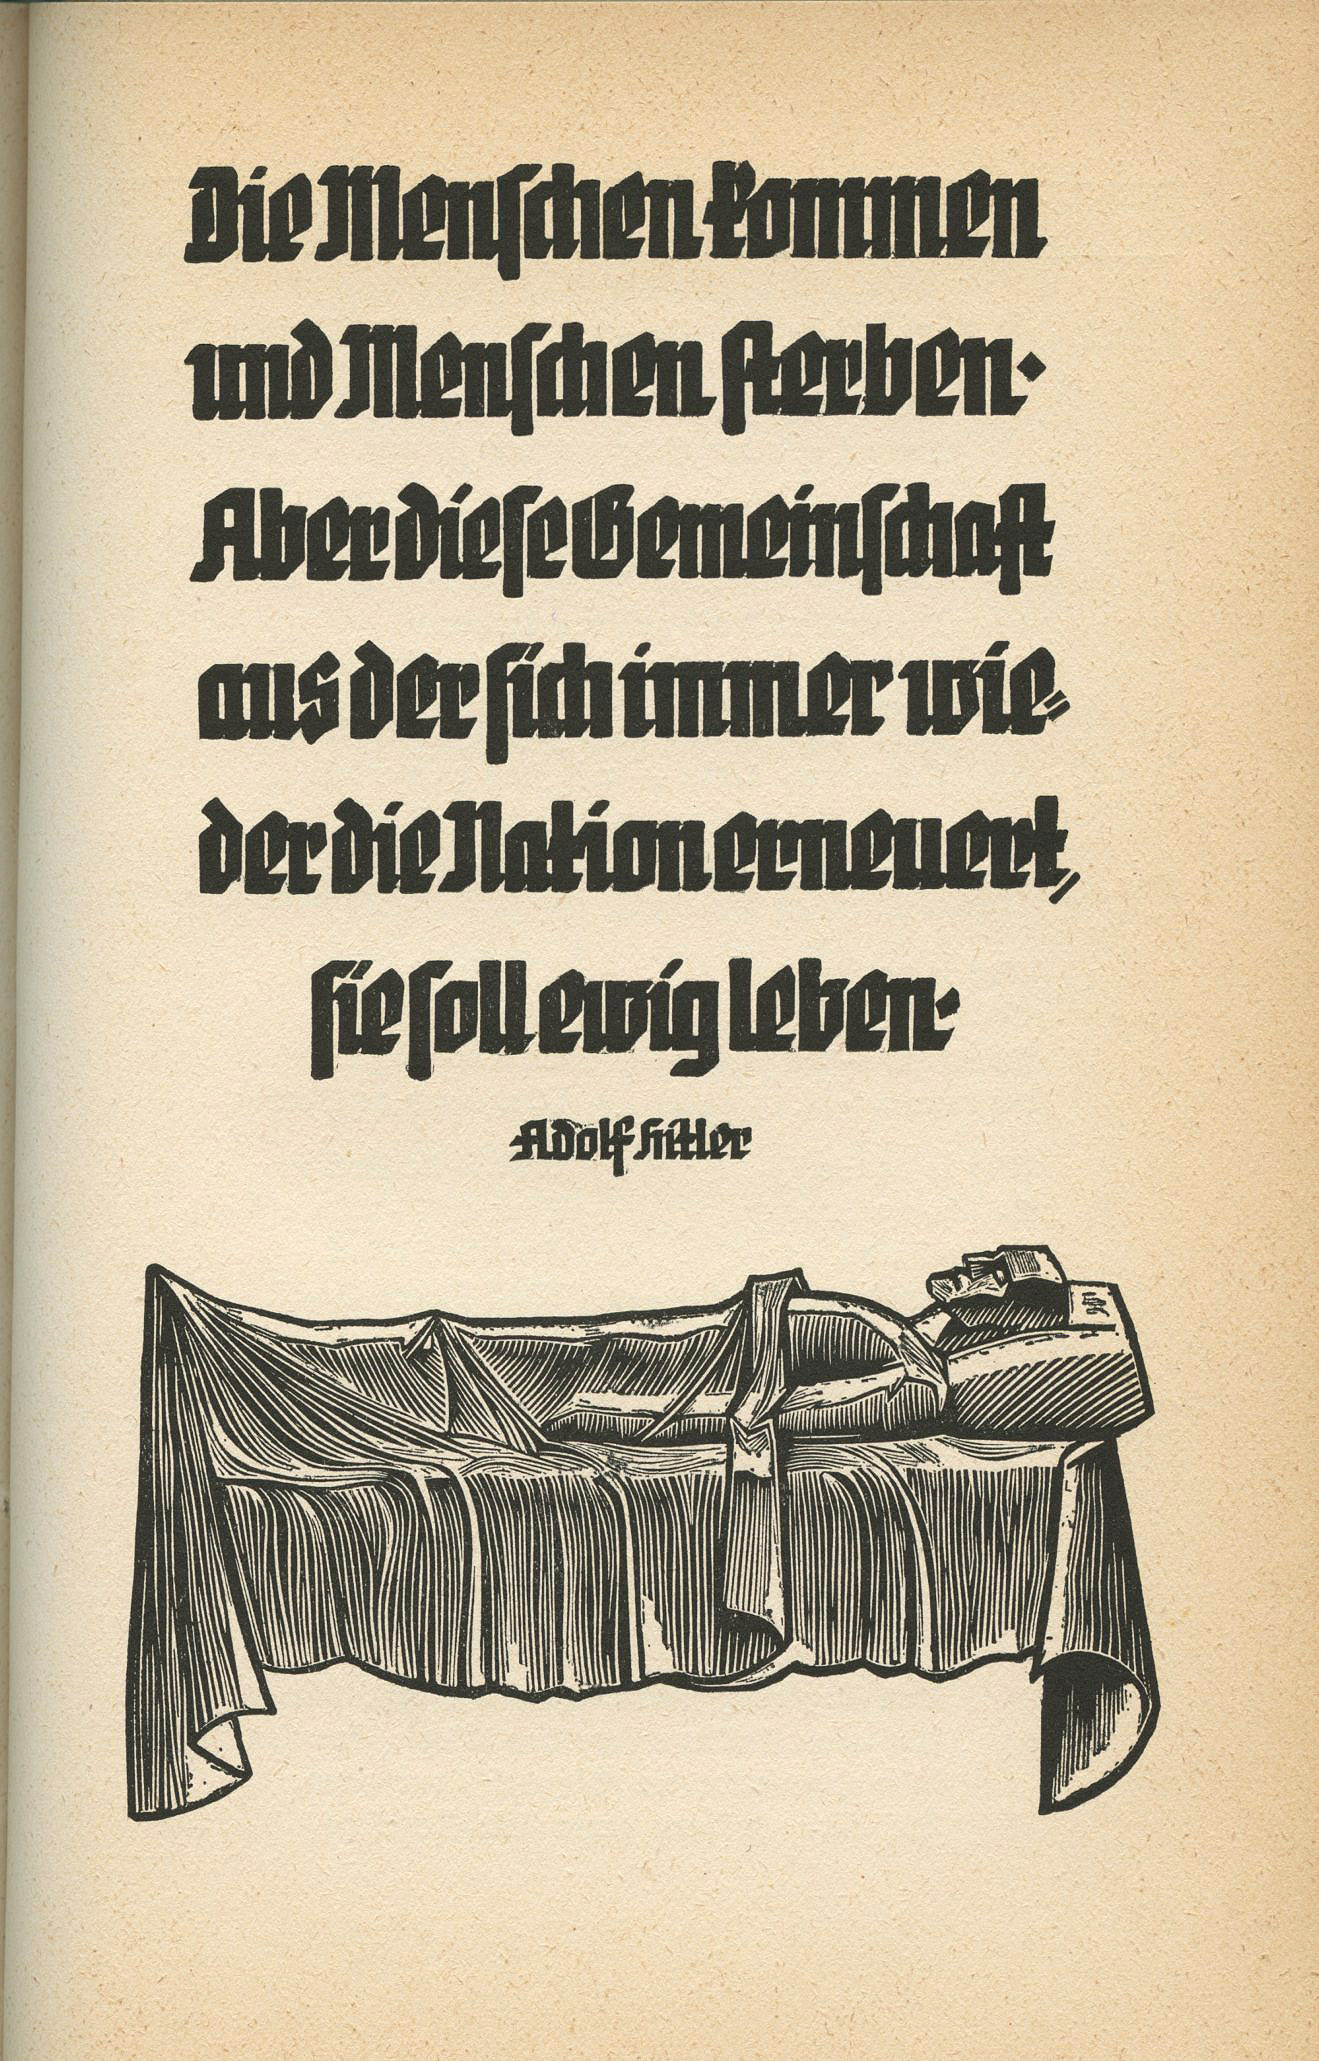 Die Menschen kommen
und Menschen sterben.
Aber diese Gemeinschaft
aus der sich immer wie=
der die Nation erneuert,
sie soll ewig leben.
Adolf Hitler